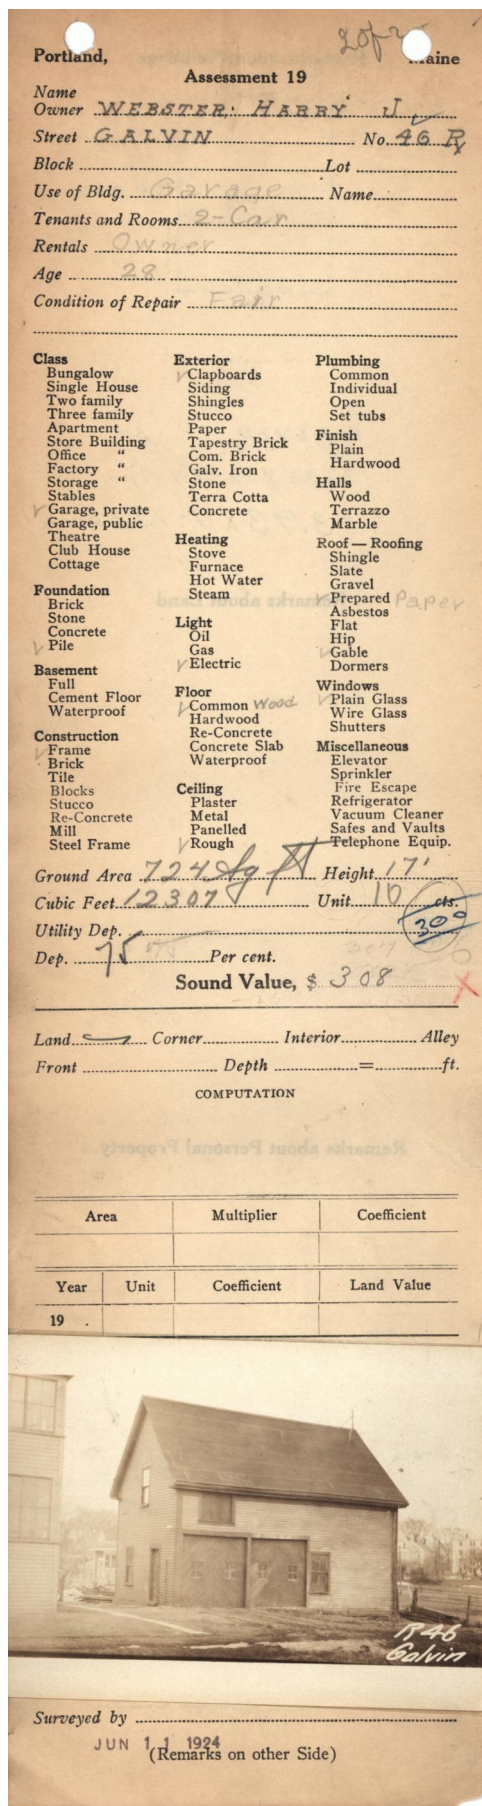 2 of 2
Portland, Maine
Assessment 19
Name
Owner WEBSTER: HARRY J
Street GALVIN No. 46 R
Block Lot
Use of Bldg. Garage Name
Tenants and Rooms 2-Car
Rentals Owner
Age 28
Condition of Repair Fair
Class
Bungalow
Single House
Two family
Three family
Apartment
Store Building
Office "
Factory "
Storage "
Stables
√ Garage, private
Garage, public
Theatre
Club House
Cottage
Foundation
Brick
Stone
Concrete
√ Pile
Basement
Full
Cement Floor
Waterproof
Construction
√ Frame
Brick
Tile
Blocks
Stucco
Re-Concrete
Mill
Steel Frame
Exterior
√ Clapboards
Siding
Shingles
Stucco
Paper
Tapestry Brick
Com. Brick
Galv. Iron
Stone
Terra Cotta
Concrete
Heating
Stove
Furnace
Hot Water
Steam
Light
Oil
Gas
√ Electric
Floor
√ Common Wood
Hardwood
Re-Concrete
Concrete Slab
Waterproof
Ceiling
Plaster
Metal
Panelled
√ Rough
Plumbing
Common
Individual
Open
Set tubs
Finish
Plain
Hardwood
Halls
Wood
Terrazzo
Marble
Roof — Roofing
Shingle
Slate
Gravel
√ Prepared Paper
Asbestos
Flat
Hip
√ Gable
Dormers
Windows
√ Plain Glass
Wire Glass
Shutters
Miscellaneous
Elevator
Sprinkler
Fire Escape
Refrigerator
Vacuum Cleaner
Safes and Vaults
Telephone Equip.
Ground Area 724 Sq ft Height 17'
Cubic Feet 12307 Unit 10 cts.
Utility Dep. 300
Dep. 75 Per cent. 307
Sound Value, $ 308 X
Land Corner Interior Alley
Front Depth = ft.
COMPUTATION
Area Multiplier Coefficient
Year Unit Coefficient Land Value
19 .
R46
Galvin
Surveyed by
JUN 11 1924
(Remarks on other Side)